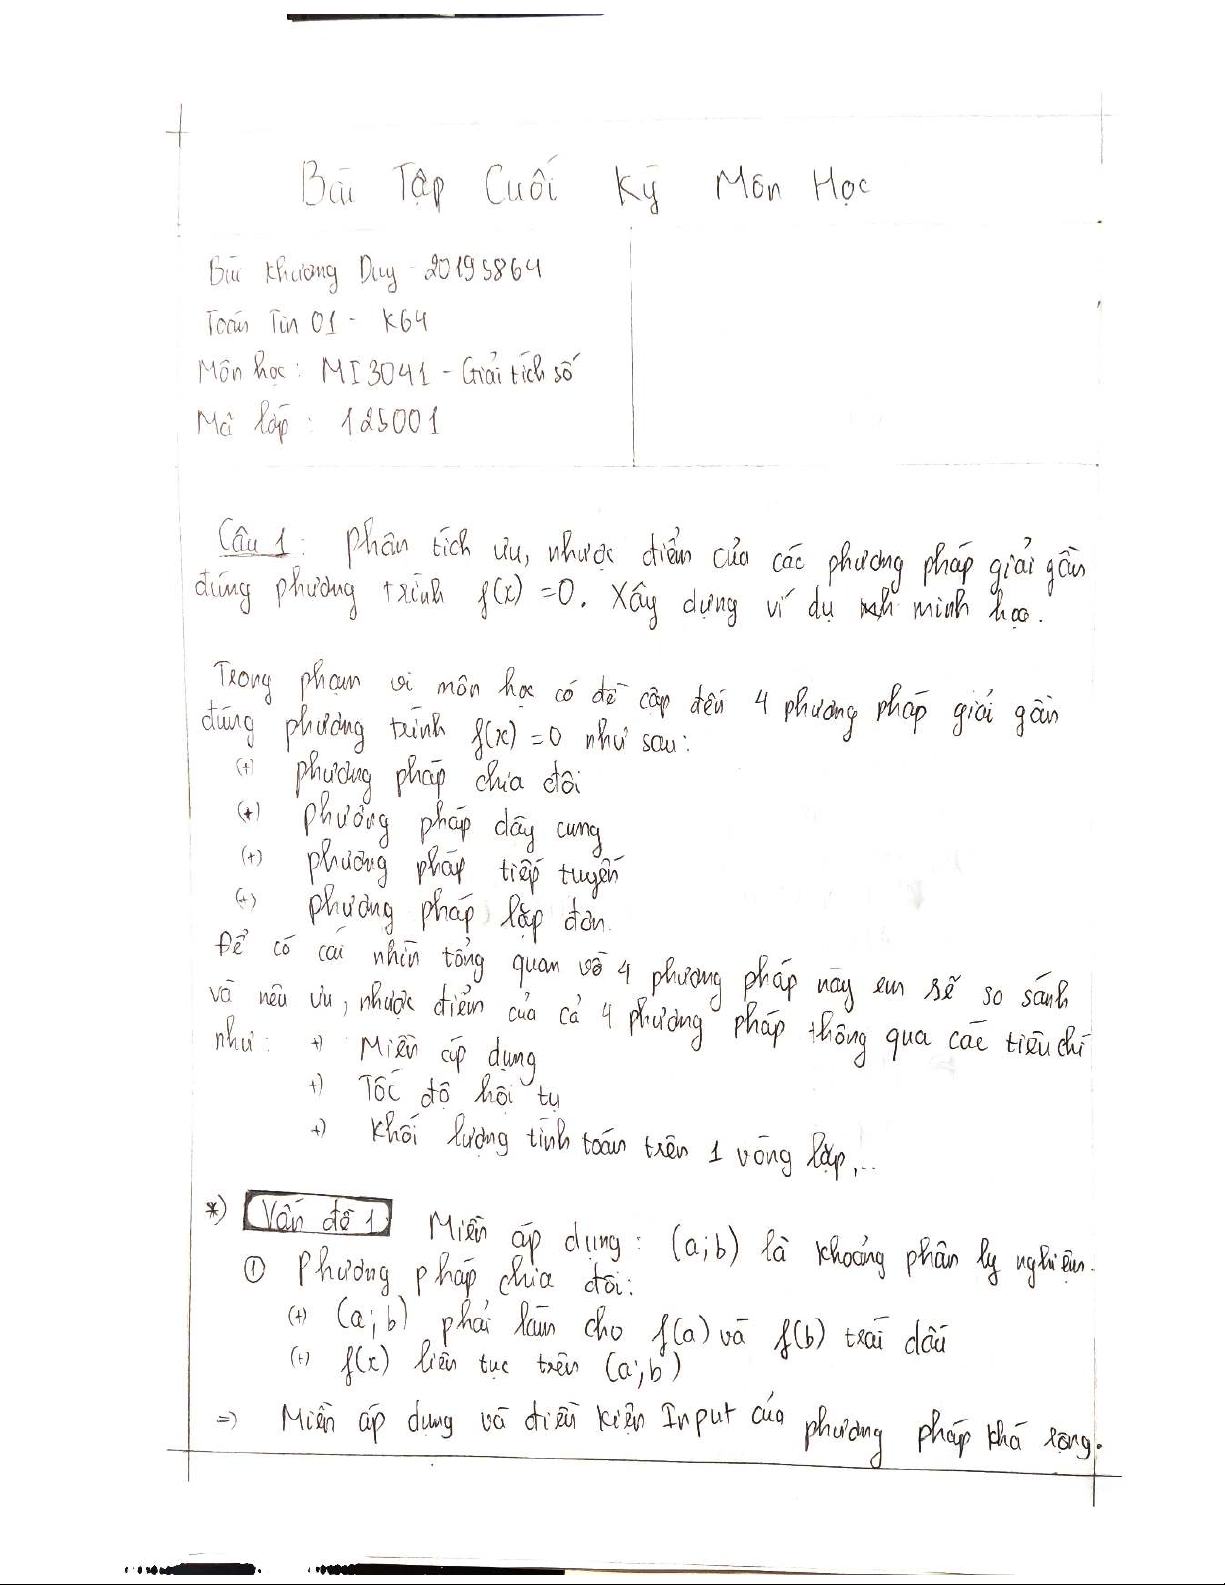 Bài Tập Cuối Kỳ Môn Học
Bùi Khương Duy - 20195864
Toán Tin 01 - K64
Môn học: MI3041 - Giải tích số
Mã lớp: 125001
Câu 1: Phân tích ưu, nhược điểm của các phương pháp giải gần
đúng phương trình f(x) = 0. Xây dựng ví dụ minh hoạ.
Trong phạm vi môn học có đề cập đến 4 phương pháp giải gần
đúng phương trình f(x) = 0 như sau:
(+) phương pháp chia đôi
(+) phương pháp dây cung
(+) phương pháp tiếp tuyến
(+) phương pháp lặp đơn.
Để có cái nhìn tổng quan về 4 phương pháp này em sẽ so sánh
và nêu ưu, nhược điểm của cả 4 phương pháp thông qua các tiêu chí
như: +) Miền áp dụng
+) Tốc độ hội tụ
+) Khối lượng tính toán trên 1 vòng lặp,..
*) Vấn đề 1 Miền áp dụng: (a;b) là khoảng phân ly nghiệm.
① Phương pháp chia đôi:
(+) (a;b) phải làm cho f(a) và f(b) trái dấu
(+) f(x) liên tục trên (a;b)
=> Miền áp dụng và điều kiện Input của phương pháp khá rộng.